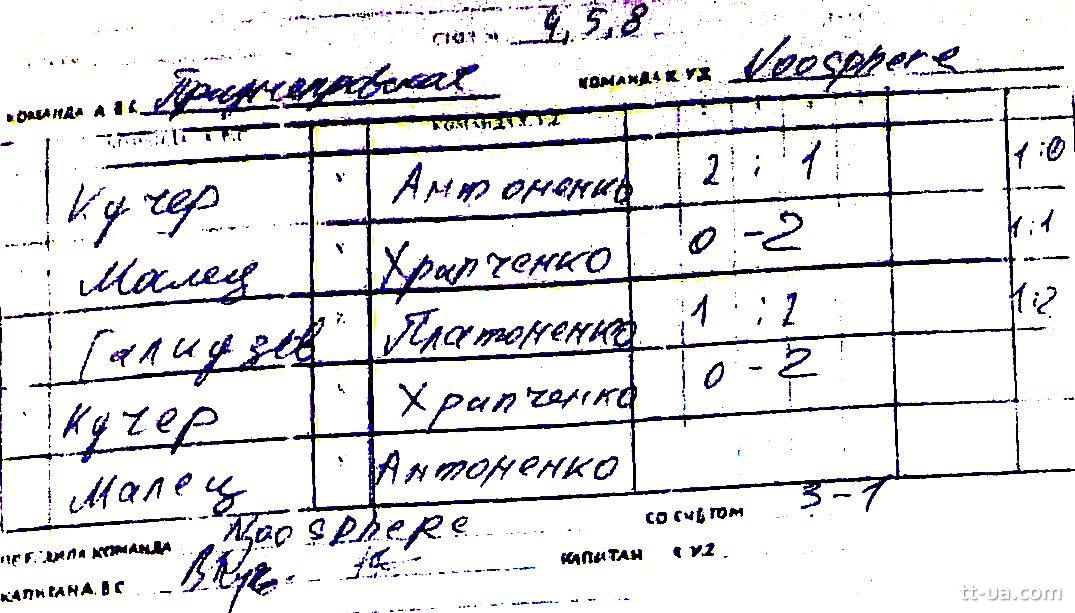 СТОЛ № 4, 5, 8
КОМАНДА А В С Приднепровская КОМАНДА X Y Z Noosphere
КОМАНДА X. Y.Z
Кучер Антоненко 2 : 1 1:0
Малец Храпченко 0 - 2 1:1
Галидзев Платоненко 1 : 2 1:2
Кучер Храпченко 0 - 2
Малец Антоненко
ПОБЕДИЛА КОМАНДА Noosphere СО СЧЕТОМ 3 - 1
КАПИТАН А В С КАПИТАН X Y.Z.
tt-ua.com